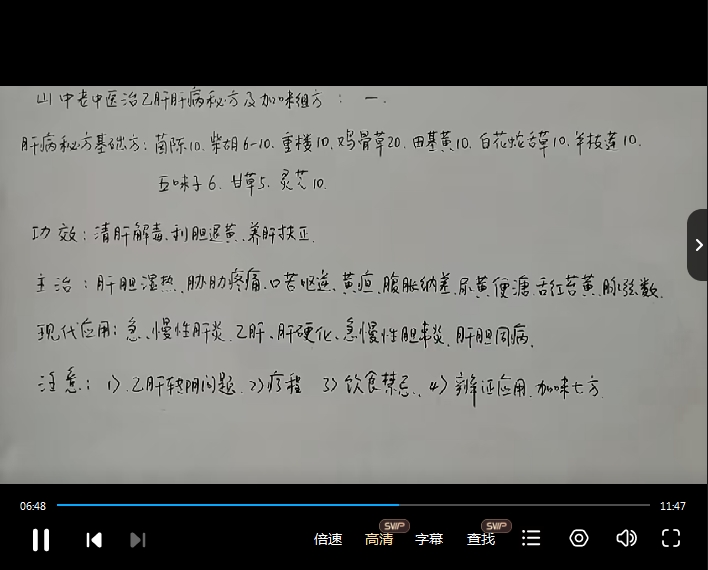 山中老中医治乙肝肝病秘方及加味组方：一.
肝病秘方基础方：茵陈10.柴胡6-10.重楼10.鸡骨草20.田基黄10.白花蛇舌草10.半枝莲10.
五味子6.甘草5.灵芝10.
功效：清肝解毒、利胆退黄、养肝扶正.
主治：肝胆湿热、胁肋疼痛、口苦呕逆、黄疸、腹胀纳差、尿黄便溏、舌红苔黄、脉弦数.
现代应用：急、慢性肝炎、乙肝、肝硬化、急慢性胆囊炎、肝胆同病.
注意：1）乙肝转阴问题.2）疗程 3）饮食禁忌、4）辨证应用.加味七方
06:48
11:47
倍速
高清
SWIP
字幕
查找
SWIP